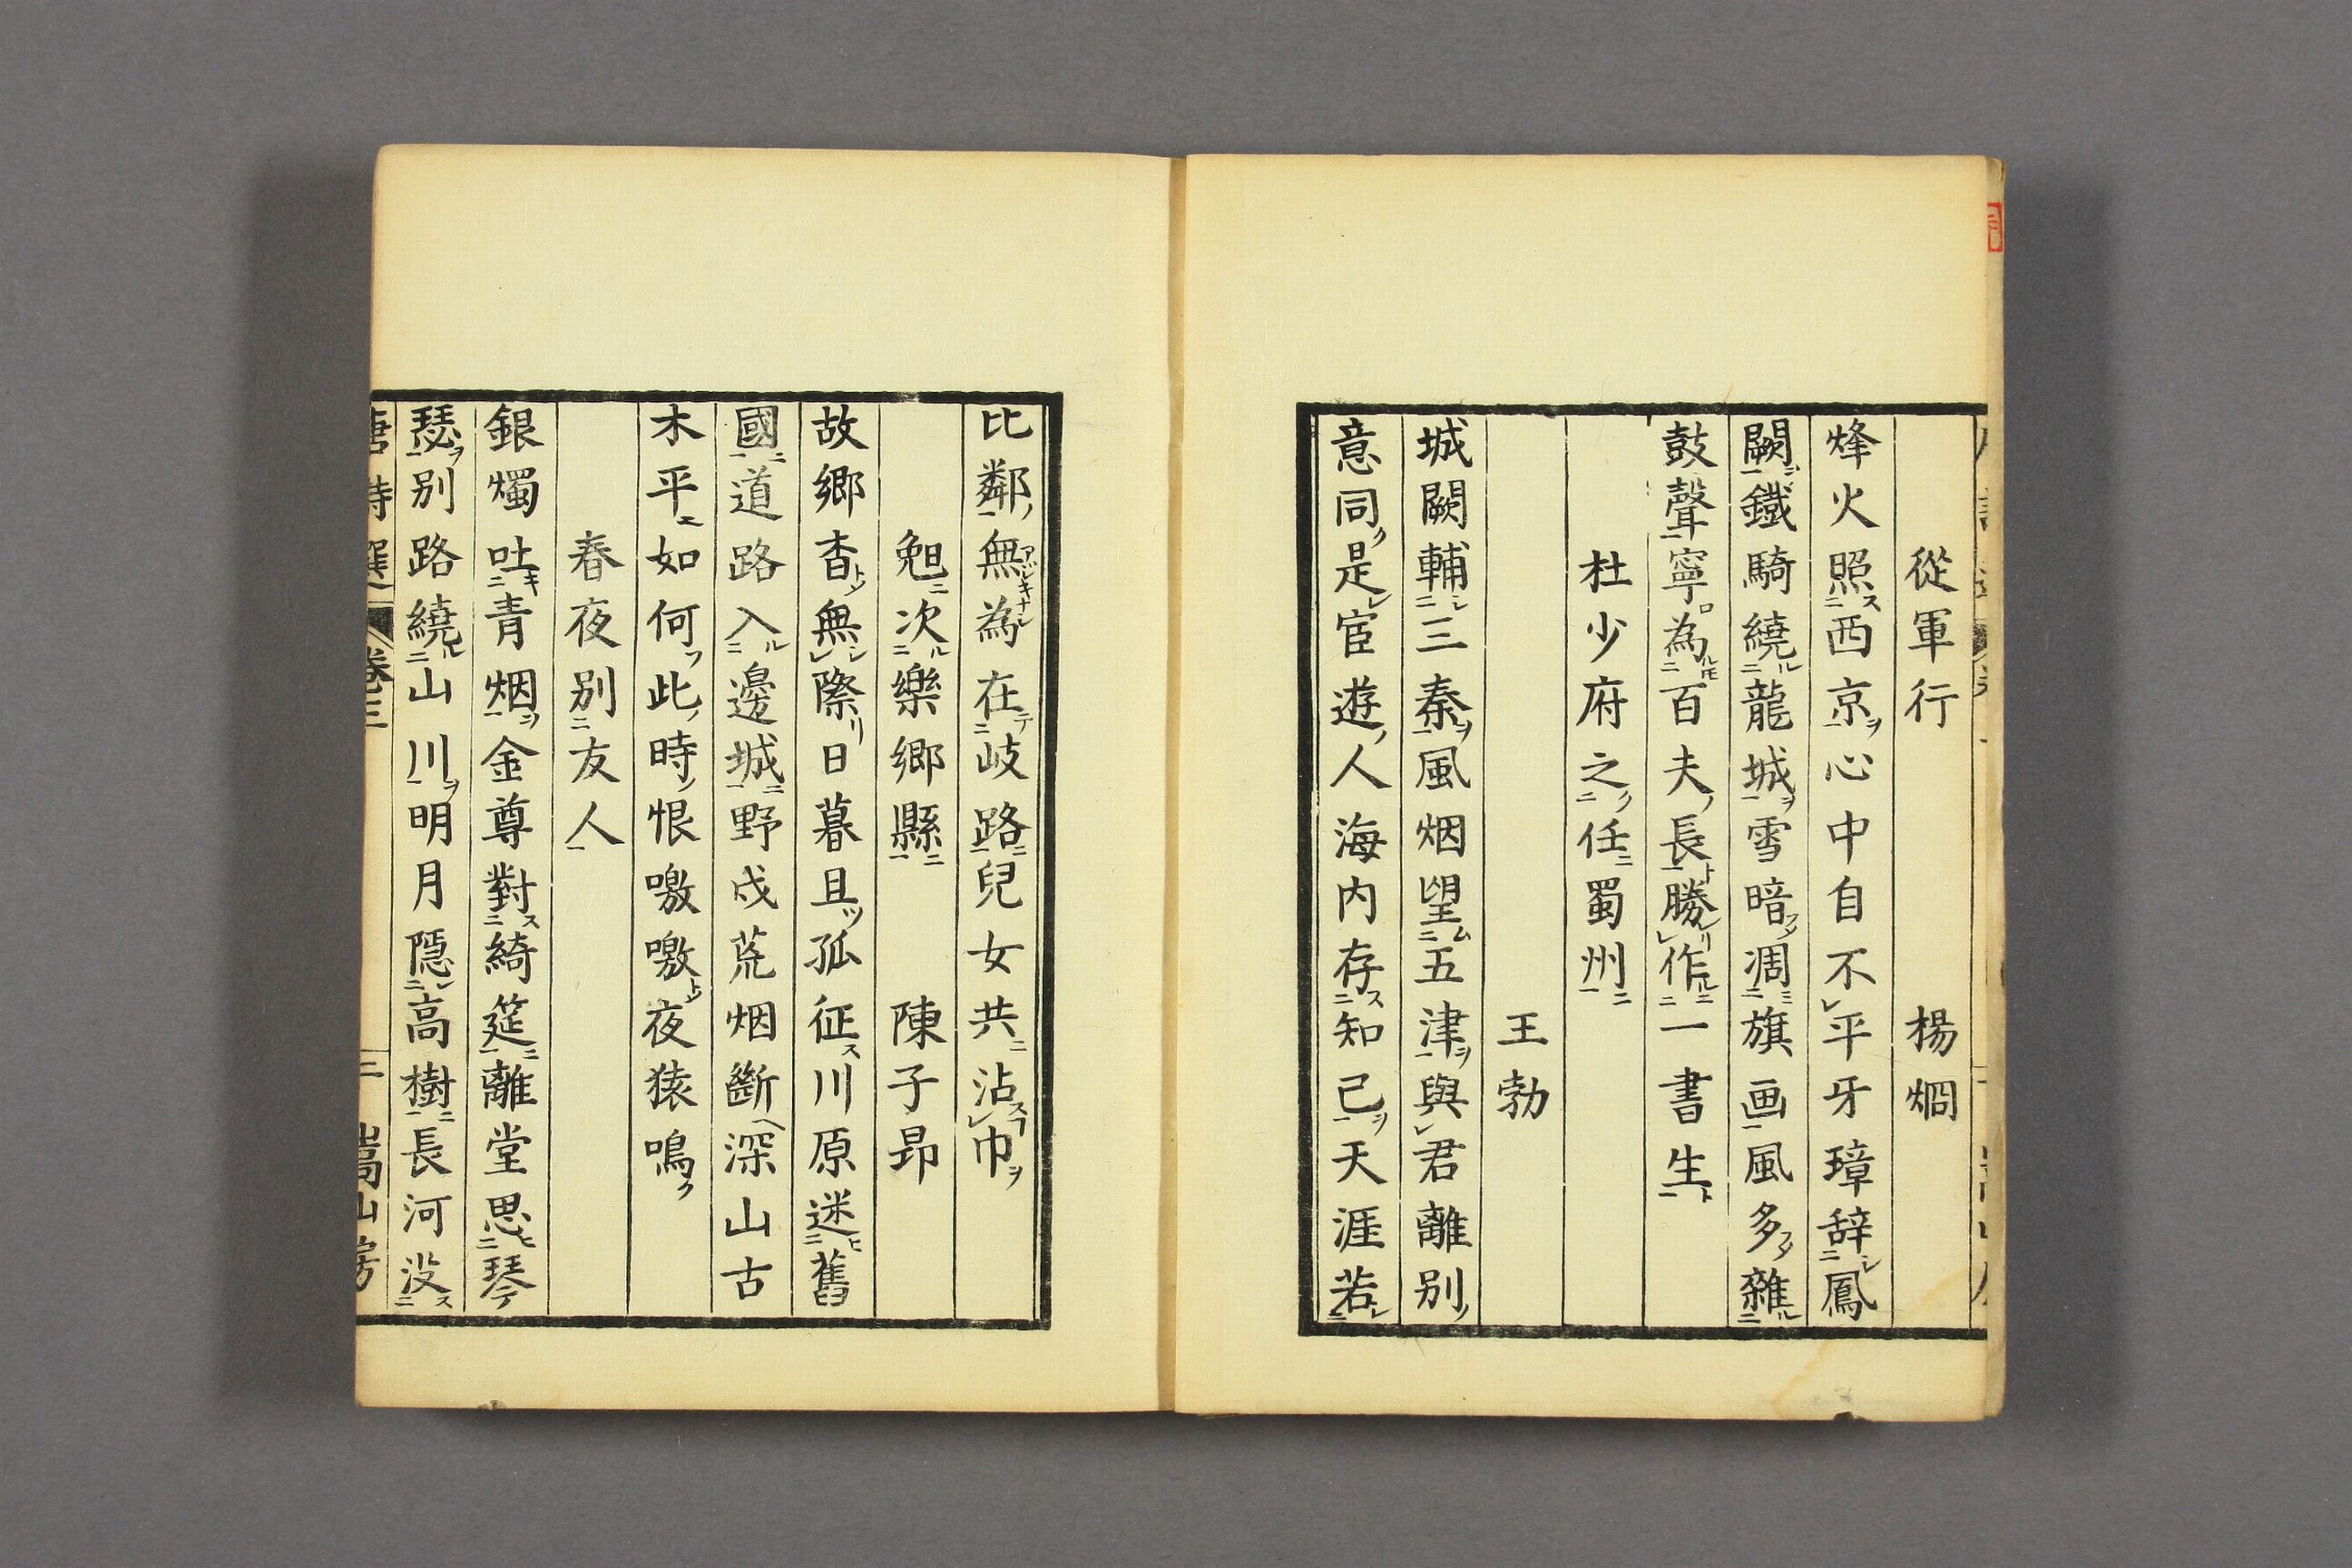 從軍行 楊烱
烽火照西京心中自不平牙璋辭鳳
闕鐵騎繞龍城雪暗凋旗画風多雜
鼓聲寧為百夫長勝作一書生
杜少府之任蜀州
王勃
城闕輔三秦風烟望五津與君離別
意同是宦遊人海内存知己天涯若
比鄰無為在岐路兒女共沾巾
晚次樂鄉縣 陳子昂
故鄉杳無際日暮且孤征川原迷舊
國道路入邊城野戍荒烟斷深山古
木平如何此時恨噭噭夜猿鳴
春夜別友人
銀燭吐青烟金尊對綺筵離堂思琴
瑟別路繞山川明月隱高樹長河没
唐詩選 卷三 三 嵩山房